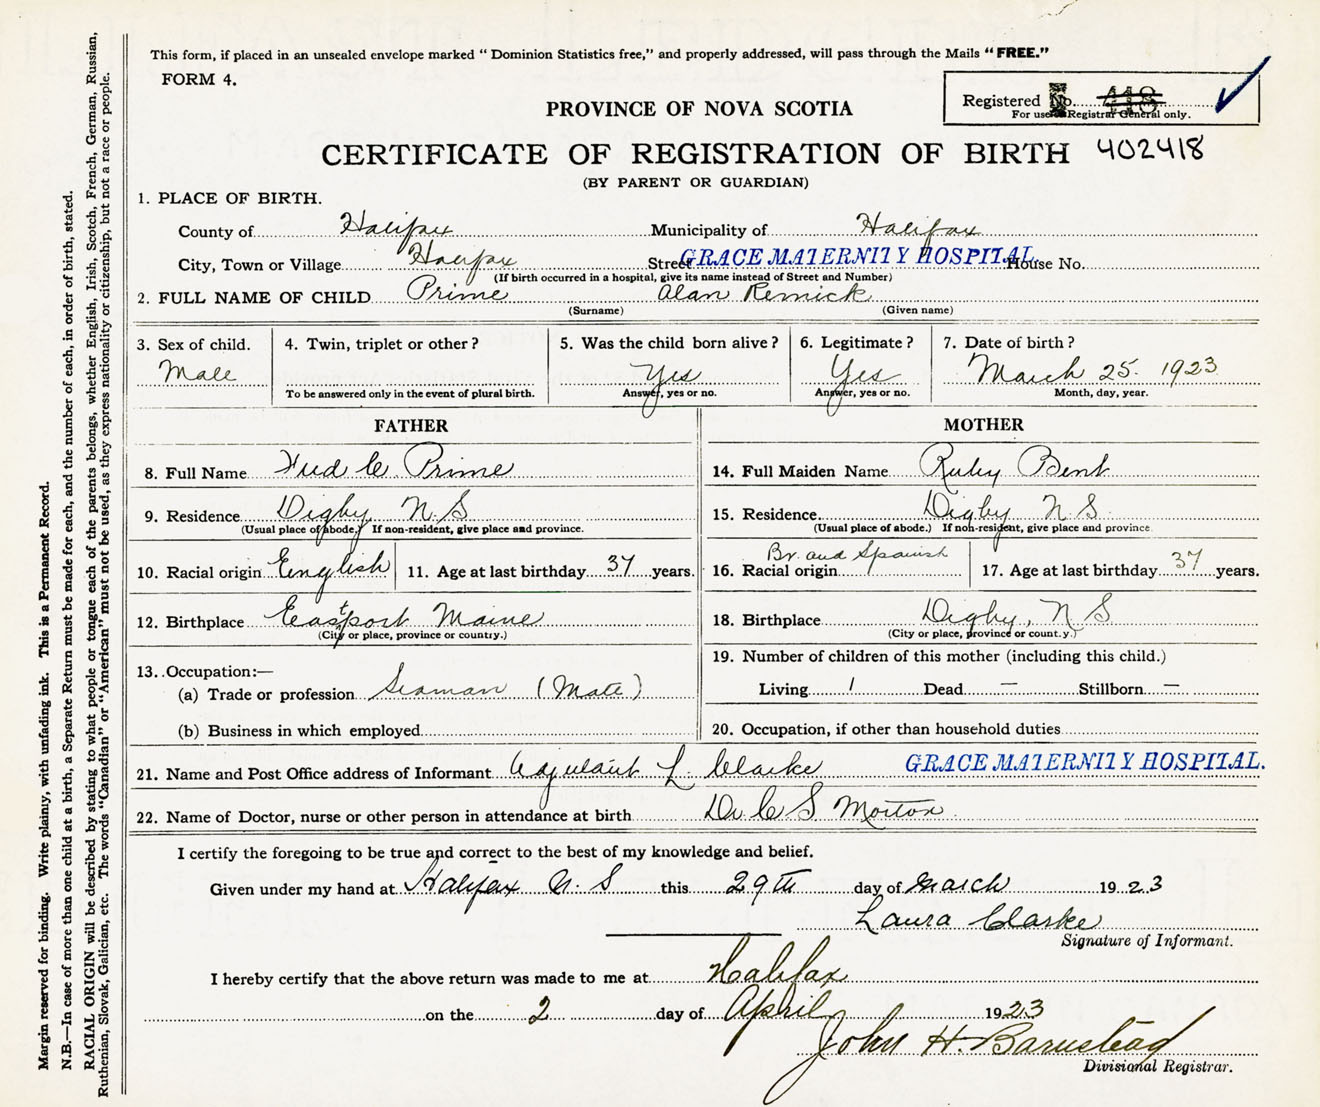 This form, if placed in an unsealed envelope marked "Dominion Statistics free," and properly addressed, will pass through the Mails "FREE."
FORM 4.
Registered No. 418
For use Registrar General only.
PROVINCE OF NOVA SCOTIA
CERTIFICATE OF REGISTRATION OF BIRTH 402418
(BY PARENT OR GUARDIAN)
1. PLACE OF BIRTH.
County of Halifax Municipality of Halifax
City, Town or Village Halifax Street GRACE MATERNITY HOSPITAL. House No.
(If birth occurred in a hospital, give its name instead of Street and Number)
2. FULL NAME OF CHILD Prime Alan Remick
(Surname) (Given name)
3. Sex of child. 4. Twin, triplet or other? 5. Was the child born alive? 6. Legitimate? 7. Date of birth?
Male Yes Yes March 25. 1923
To be answered only in the event of plural birth. Answer, yes or no. Answer, yes or no. Month, day, year.
FATHER MOTHER
8. Full Name Fred C. Prime 14. Full Maiden Name Ruby Bent
9. Residence Digby N.S 15. Residence Digby N S
(Usual place of abode.) If non-resident, give place and province. (Usual place of abode.) If non-resident, give place and province.
10. Racial origin English 11. Age at last birthday 37 years. 16. Racial origin Br. and Spanish 17. Age at last birthday 37 years.
12. Birthplace Eastport Maine 18. Birthplace Digby, N S
(City or place, province or country.) (City or place, province or count.y.)
13. Occupation:— 19. Number of children of this mother (including this child.)
(a) Trade or profession Seaman (Mate) Living 1 Dead — Stillborn —
(b) Business in which employed 20. Occupation, if other than household duties
21. Name and Post Office address of Informant Adjutant L. Clarke GRACE MATERNITY HOSPITAL.
22. Name of Doctor, nurse or other person in attendance at birth Dr. C S Morton
I certify the foregoing to be true and correct to the best of my knowledge and belief.
Given under my hand at Halifax N. S this 29th day of March 1923
Laura Clarke
Signature of Informant.
I hereby certify that the above return was made to me at Halifax
on the 2 day of April 1923
John H. Barnstead
Divisional Registrar.
Margin reserved for binding. Write plainly, with unfading ink. This is a Permanent Record.
N.B.—In case of more than one child at a birth, a Separate Return must be made for each, and the number of each, in order of birth, stated.
RACIAL ORIGIN will be described by stating to what people or tongue each of the parents belongs, whether English, Irish, Scotch, French, German, Russian,
Ruthenian, Slovak, Galician, etc. The words "Canadian" or "American" must not be used, as they express nationality or citizenship, but not a race or people.